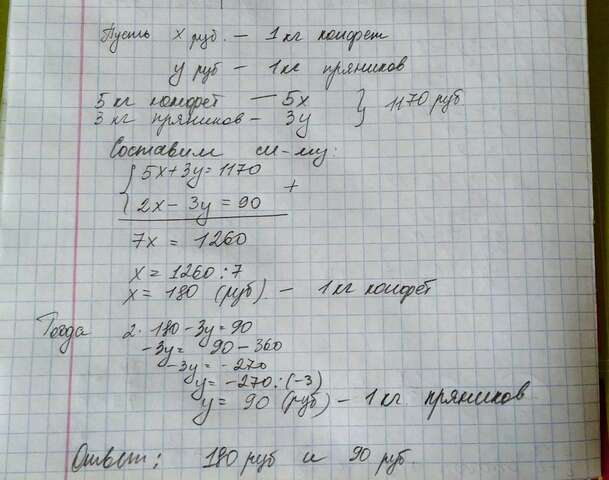 Пусть x руб. — 1 кг конфет
y руб — 1 кг пряников
5 кг конфет — 5x
3 кг пряников — 3y } 1170 руб
Составим си-му:
{ 5x + 3y = 1170
{ 2x - 3y = 90 +
7x = 1260
x = 1260 : 7
x = 180 (руб) — 1 кг конфет
Тогда 2 · 180 - 3y = 90
-3y = 90 - 360
-3y = -270
y = -270 : (-3)
y = 90 (руб) — 1 кг пряников
Ответ: 180 руб и 90 руб.